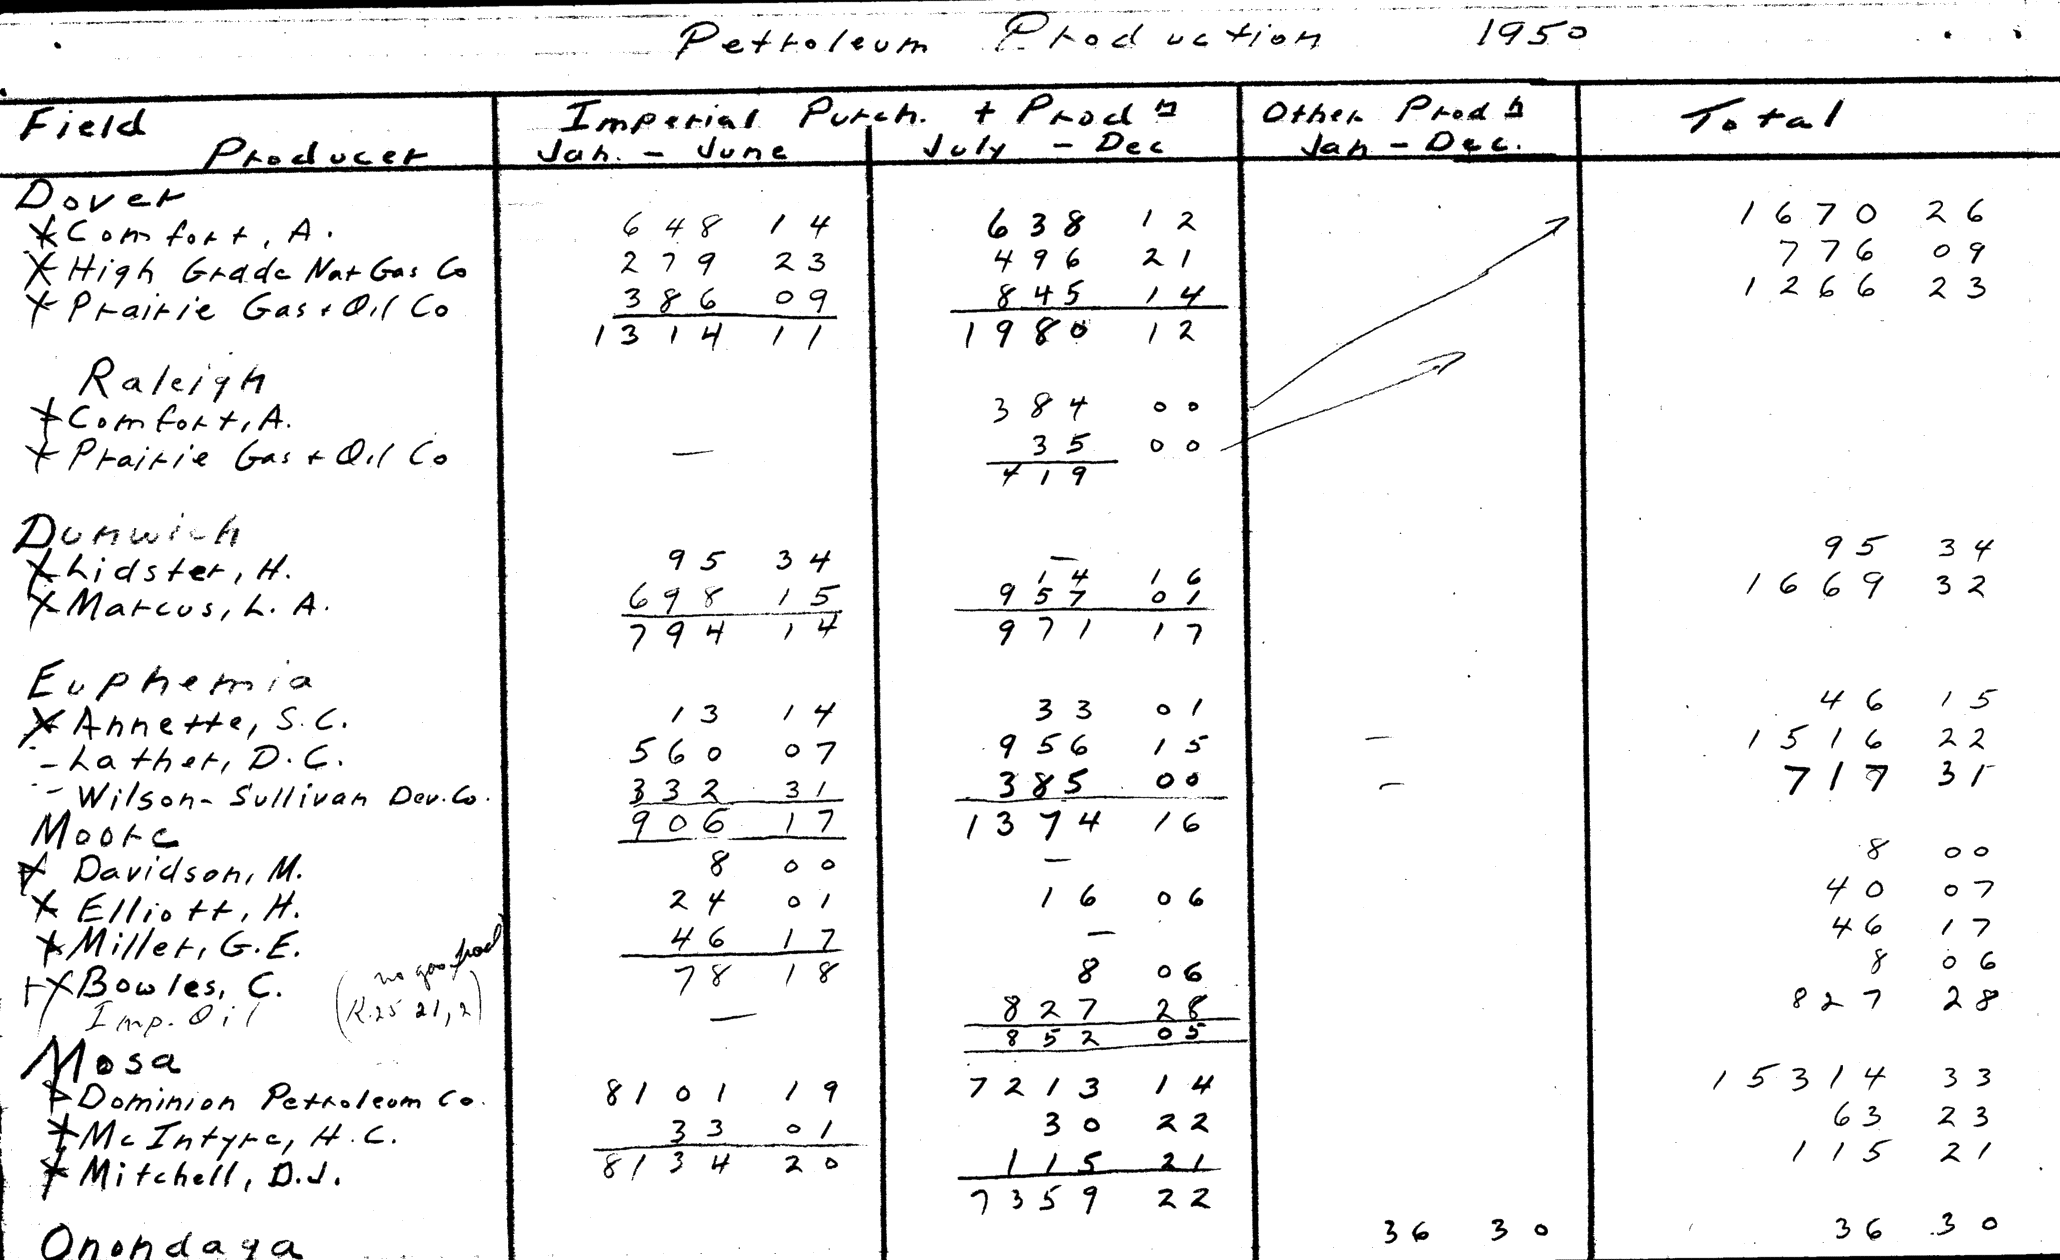 Petroleum Production 1950
Field Imperial Purch. + Prod'n Other Prod'n Total
Producer Jan. - June July - Dec Jan - Dec.
Dover
x Comfort, A. 648 14 638 12 1670 26
x High Grade Nat Gas Co 279 23 496 21 776 09
x Prairie Gas + Oil Co 386 09 845 14 1266 23
1314 11 1980 12
Raleigh
x Comfort, A. 384 00
x Prairie Gas + Oil Co — 35 00
419
Dunwich
x Lidster, H. 95 34 — 14 16 95 34
x Marcus, L. A. 698 15 957 01 1669 32
794 14 971 17
Euphemia
x Annette, S.C. 13 14 33 01 46 15
- Lather, D.C. 560 07 956 15 — 1516 22
- Wilson-Sullivan Dev. Co. 332 31 385 00 — 717 31
906 17 1374 16
Moore
x Davidson, M. 8 00 — 8 00
x Elliott, H. 24 01 16 06 40 07
x Miller, G.E. 46 17 — 46 17
x Bowles, C. (no gas prod 78 18 8 06 8 06
Imp. Oil R.25 21,2) — 827 28 827 28
852 05
Mosa
x Dominion Petroleum Co. 8101 19 7213 14 15314 33
x McIntyre, H.C. 33 01 30 22 63 23
x Mitchell, D.J. 8134 20 115 21 115 21
7359 22
Onondaga 36 30 36 30